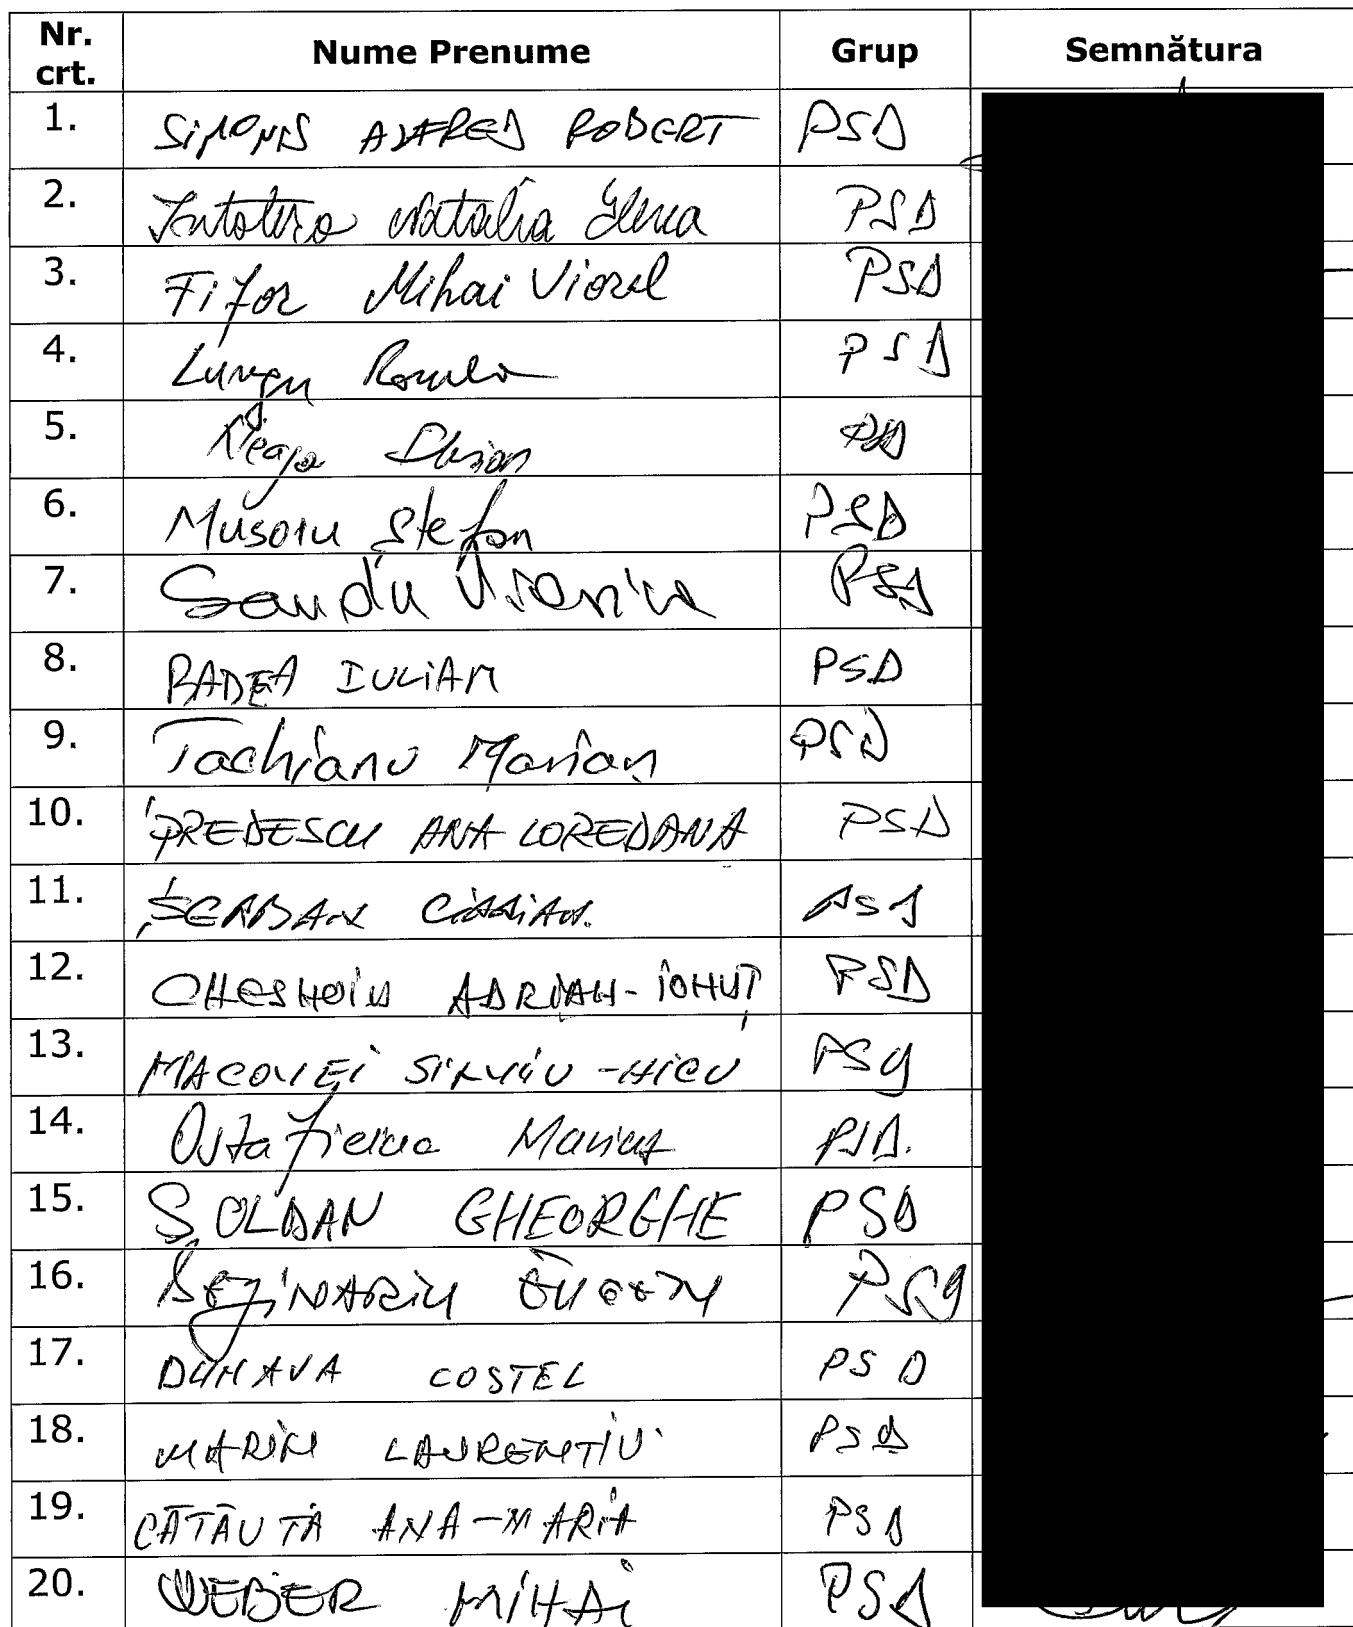 Nr. crt. Nume Prenume Grup Semnătura
1. SIMONIS ALFRED ROBERT PSD
2. Intotero Natalia Elena PSD
3. Fifor Mihai Viorel PSD
4. Lungu Romulus PSD
5. Neaga PSD
6. Musoiu Ștefan PSD
7. Sandu Viorica PSD
8. BADEA IULIAN PSD
9. Tachianu Marian PSD
10. PREDESCU ANA LOREDANA PSD
11. ȘERBAN CIPRIAN PSD
12. CHESNOIU ADRIAN-IONUȚ PSD
13. MACOVEI SILVIU-NICU PSD
14. Ostaficiuc Marius PSD.
15. ȘOLDAN GHEORGHE PSD
16. BEJINARIU EUGEN PSD
17. DUNAVA COSTEL PSD
18. MARIN LAURENTIU PSD
19. CĂTĂUTĂ ANA-MARIA PSD
20. WEBER MIHAI PSD